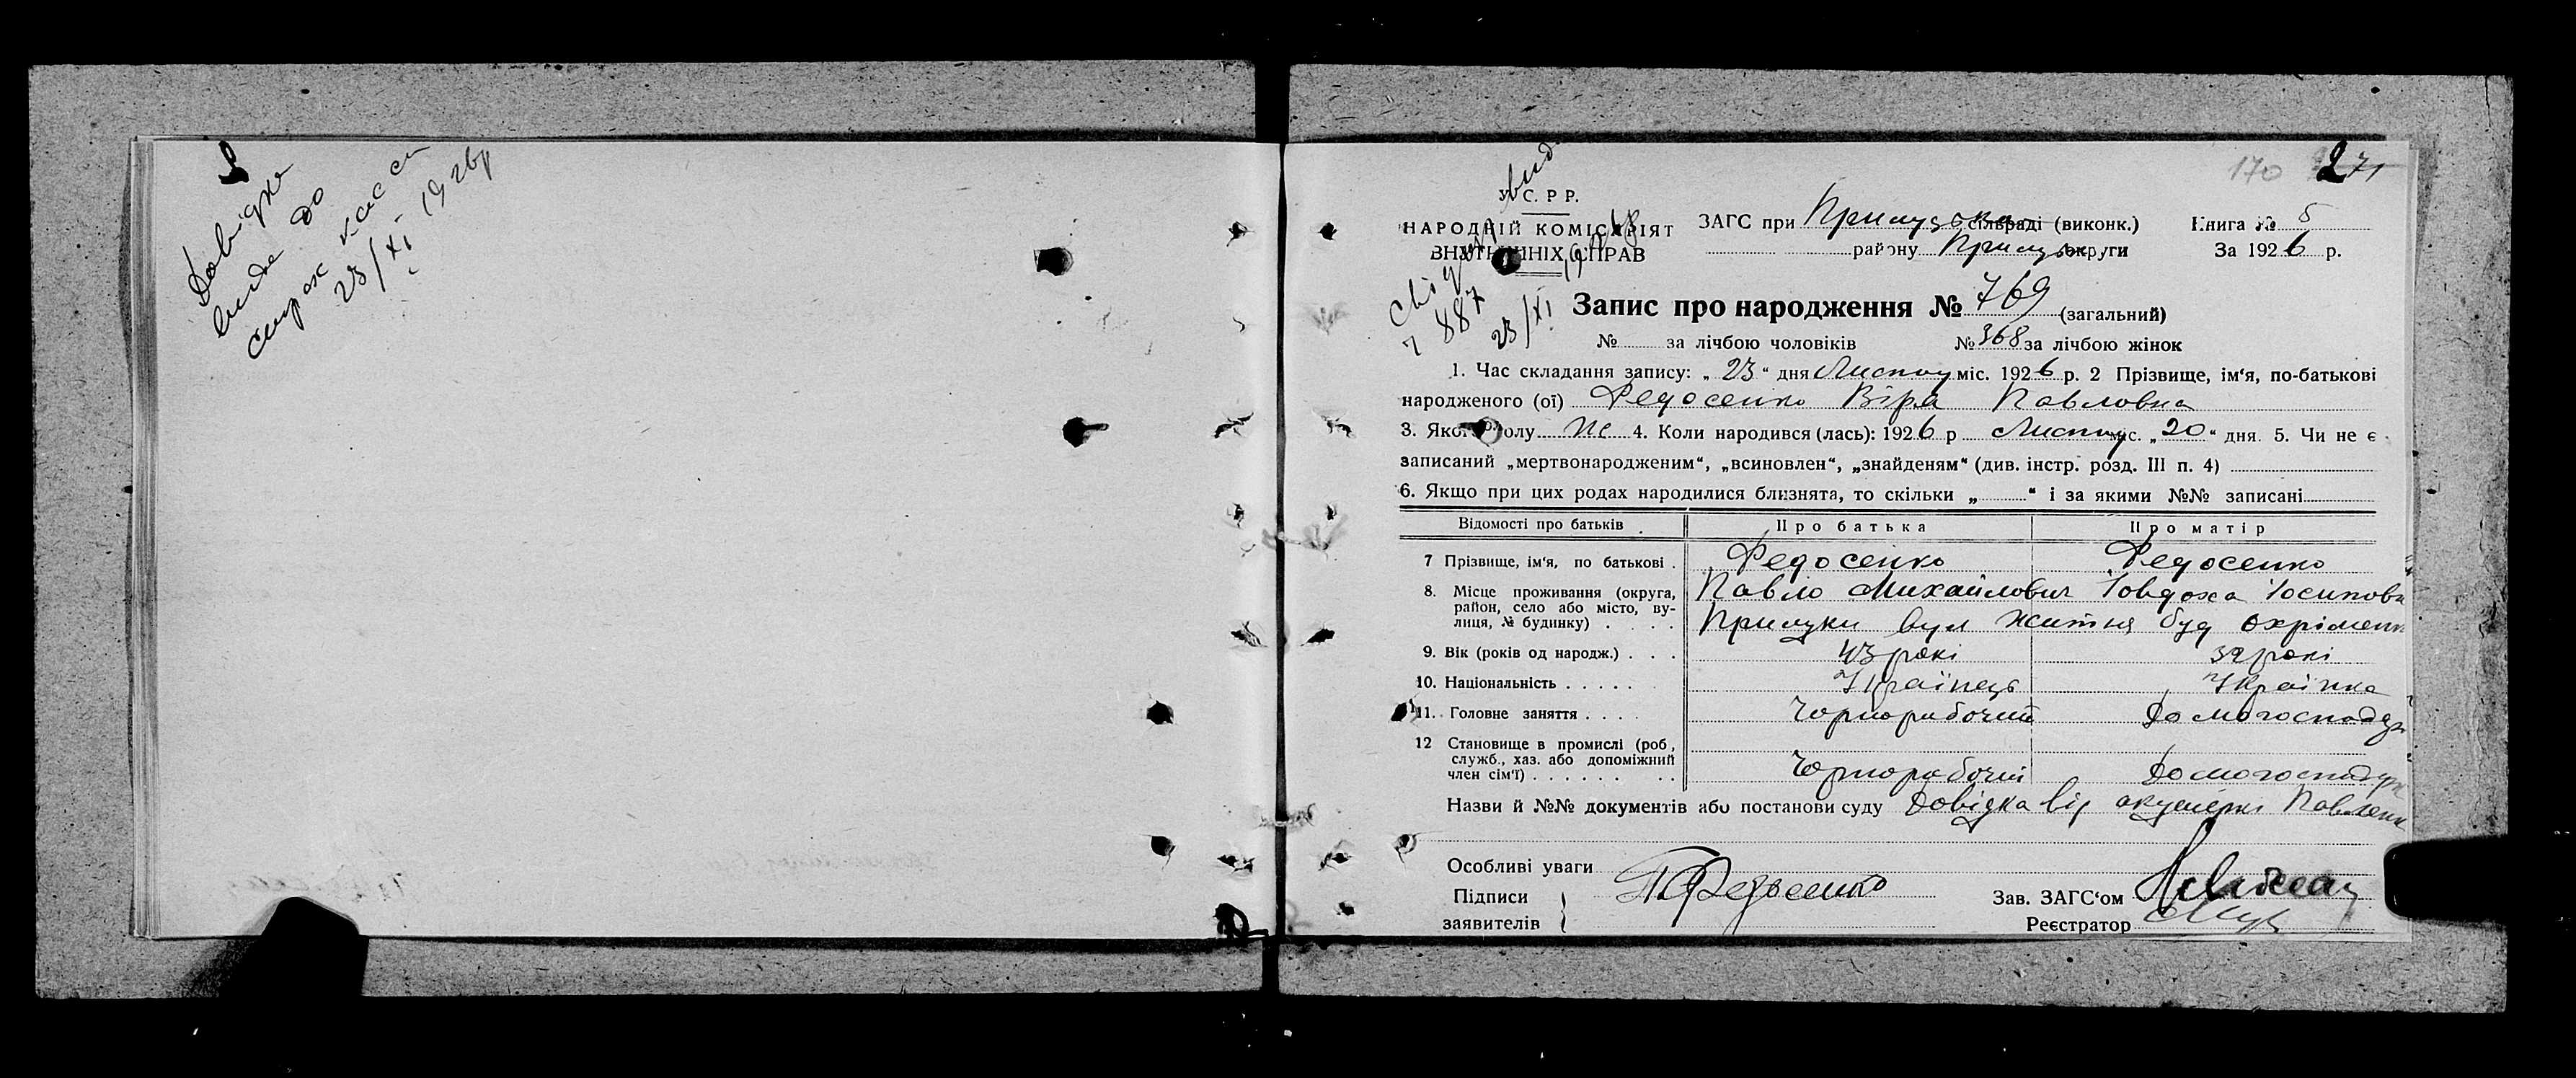 Довідка
видана до
страх каси
23/XI 1926р
170 271
Свідоцт. вид.
7 887
23/XI 1926
У. С. Р. Р.
НАРОДНІЙ КОМІСАРІЯТ
ВНУТРІШНІХ СПРАВ
ЗАГС при Прилуцькому сільраді (виконк.) Книга № 5
району Прилуцьк округи За 1926 р.
Запис про народження № 769 (загальний)
№ за лічбою чоловіків № 368 за лічбою жінок
1. Час складання запису: „ 23 “ дня Листоп міс. 1926 р. 2 Прізвище, ім‘я, по-батькові
народженого (ої) Федосенко Віра Павловна
3. Якого полу Же 4. Коли народився (лась): 1926 р Листоп міс. „ 20 “ дня. 5. Чи не є
записаний „мертвонародженим“, „всиновлен“, „знайденям“ (див. інстр. розд. III п. 4)
6. Якщо при цих родах народилися близнята, то скільки „ “ і за якими №№ записані
Відомості про батьків Про батька Про матір
7 Прізвище, ім‘я, по батькові . Федосенко Федосенко
8. Місце проживання (округа, Павло Михайлович Йовдоха Йосиповн
район, село або місто, ву-
лиця, № будинку) . . . . Прилуки вул Житня буд Охріменк
9. Вік (років од народж.) . . . 43 рокі 32 рокі
10. Національність . . . . . Українець Українка
11. Головне заняття . . . . Чорнорабочий Домогосподар
12 Становище в промислі (роб,
служб., хаз. або допоміжний
член сім‘ї) . . . . . . . . Чорнорабочий Домогосподар
Назви й №№ документів або постанови суду Довідка від акушерки Павленк
Особливі уваги
Підписи П Федосенко Зав. ЗАГС‘ом
заявителів Реєстратор